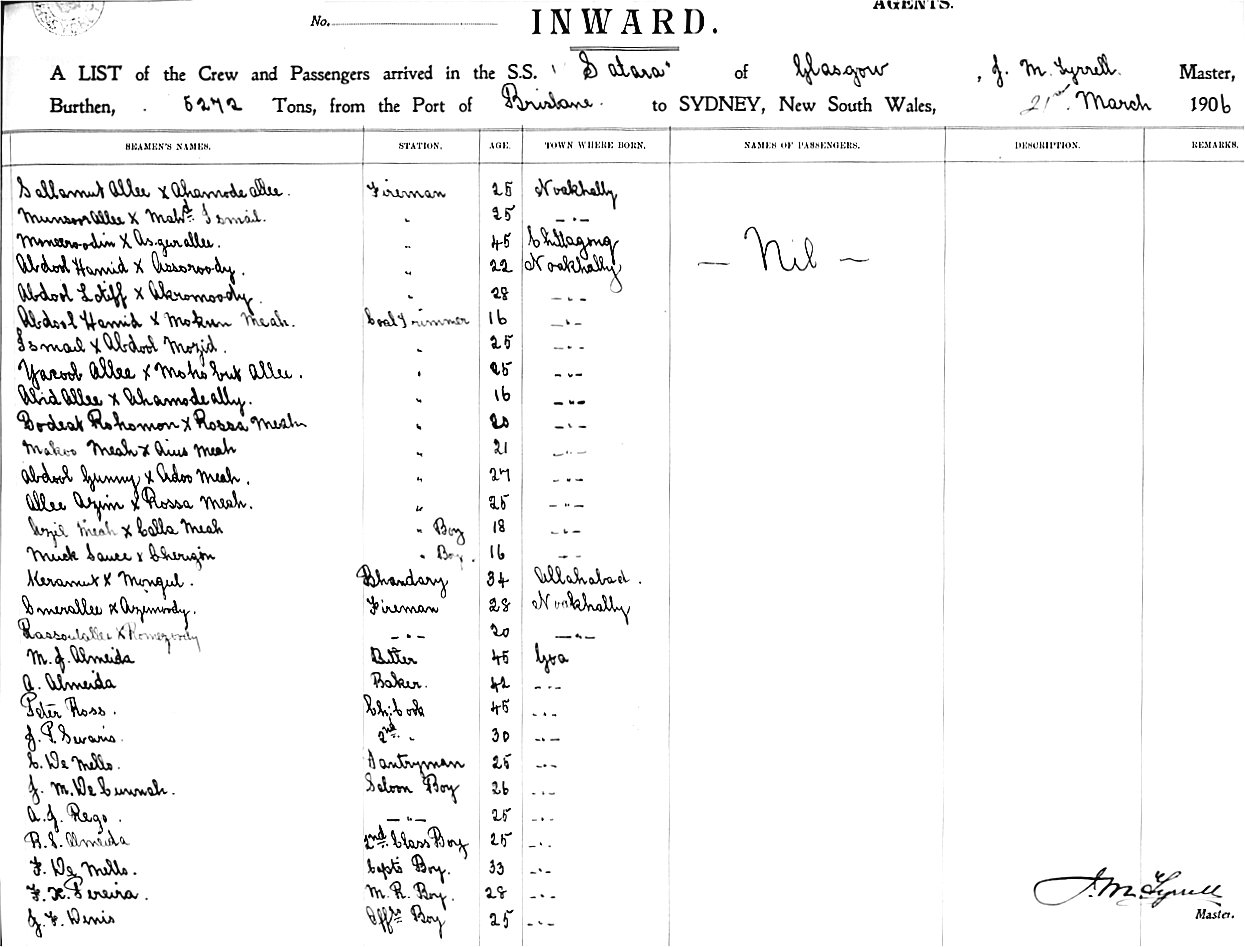 AGENTS.
No.
INWARD.
A LIST of the Crew and Passengers arrived in the S.S. "Satara" of Glasgow, J. M. Tyrrell. Master,
Burthen, 5272 Tons, from the Port of Brisbane. to SYDNEY, New South Wales, 21st March 1906
SEAMEN'S NAMES. STATION. AGE. TOWN WHERE BORN. NAMES OF PASSENGERS. DESCRIPTION. REMARKS.
Sallamut Allee x Ahamode allee. Fireman 25 Noakhally
Munsoor Allee x Mahd. Ismail. " 25 — " —
Moneeroodin x Asgerallee. " 45 Chittagong
— Nil —
Abdool Hamid x Assoroody. " 22 Noakhally
Abdool Lotiff x Akromoody. " 28 — " —
Abdool Hamid x Mokun Meah. Coal Trimmer 16 — " —
Ismail x Abdool Mozid. " 25 — " —
Yacoob Allee x Mohobut Allee. " 25 — " —
Abid Allee x Ahamode ally. " 16 — " —
Bodeat Rohomon x Rossa Meah " 20 — " —
Makoo Meah x Aius Meah " 21 — " —
Abdool Gunny x Adoo Meah. " 27 — " —
Allee Azim x Rossa Meah. " 25 — " —
Meah x Calla Meah " Boy 18 — " —
Muck x " Boy. 16 — " —
Keramut x Mongul. Bhandary 34 Allahabad.
Omerallee x Azimoody. Fireman 28 Noakhally
Rassoolallee x Romezoody — " — 20 — " —
M. J. Almeida Butler 45 Goa
A. Almeida Baker. 42 — " —
Peter Ross. Ch: Cook 45 — " —
J. P. Swaris. 2nd " 30 — " —
C. De Mello. Pantryman 25 — " —
J. M. De Cunnah. Saloon Boy 26 — " —
A. J. Rego. — " — 25 — " —
B. S. Almeida 2nd Class Boy 25 — " —
F. De Mello. Capts Boy. 33 — " —
F. X. Pereira. M. R. Boy. 28 — " —
J. F. Denis Offrs Boy 25 — " —
J. M. Tyrrell
Master.